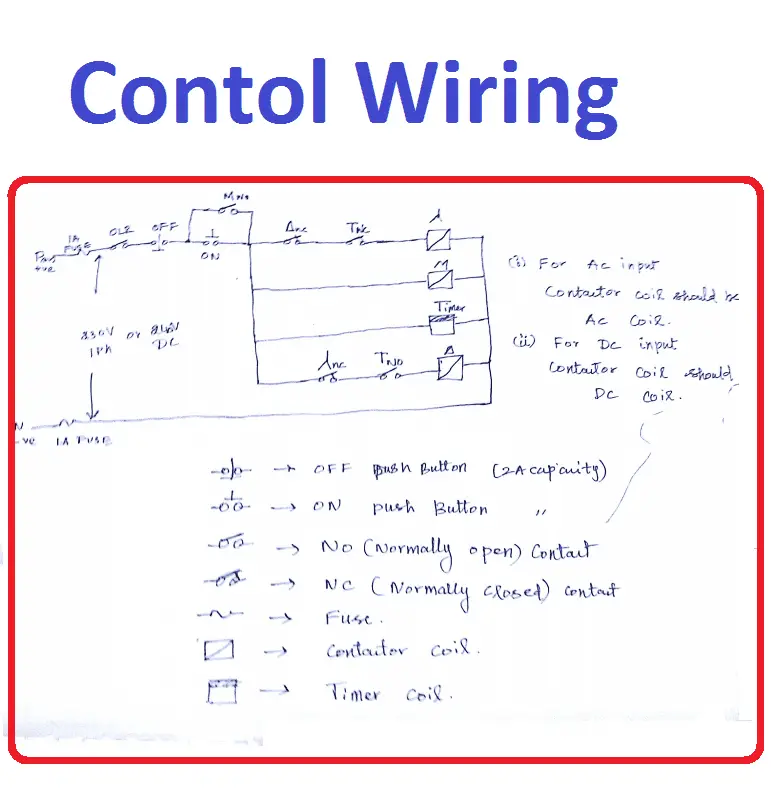 Contol Wiring
MNO
1A FUSE OLR OFF
ON
Δnc TNC λ
M
Timer
λnc TNO Δ
+ve
230V or DC
1Ph
N
-ve 1A FUSE
(i) For Ac input
Contactor coil should be
Ac Coil.
(ii) For DC input
Contactor Coil should
DC coil.
→ OFF push Button (2A capacity)
→ ON push Button "
→ NO (Normally open) Contact
→ NC (Normally closed) contact
→ Fuse.
→ Contactor coil.
→ Timer coil.